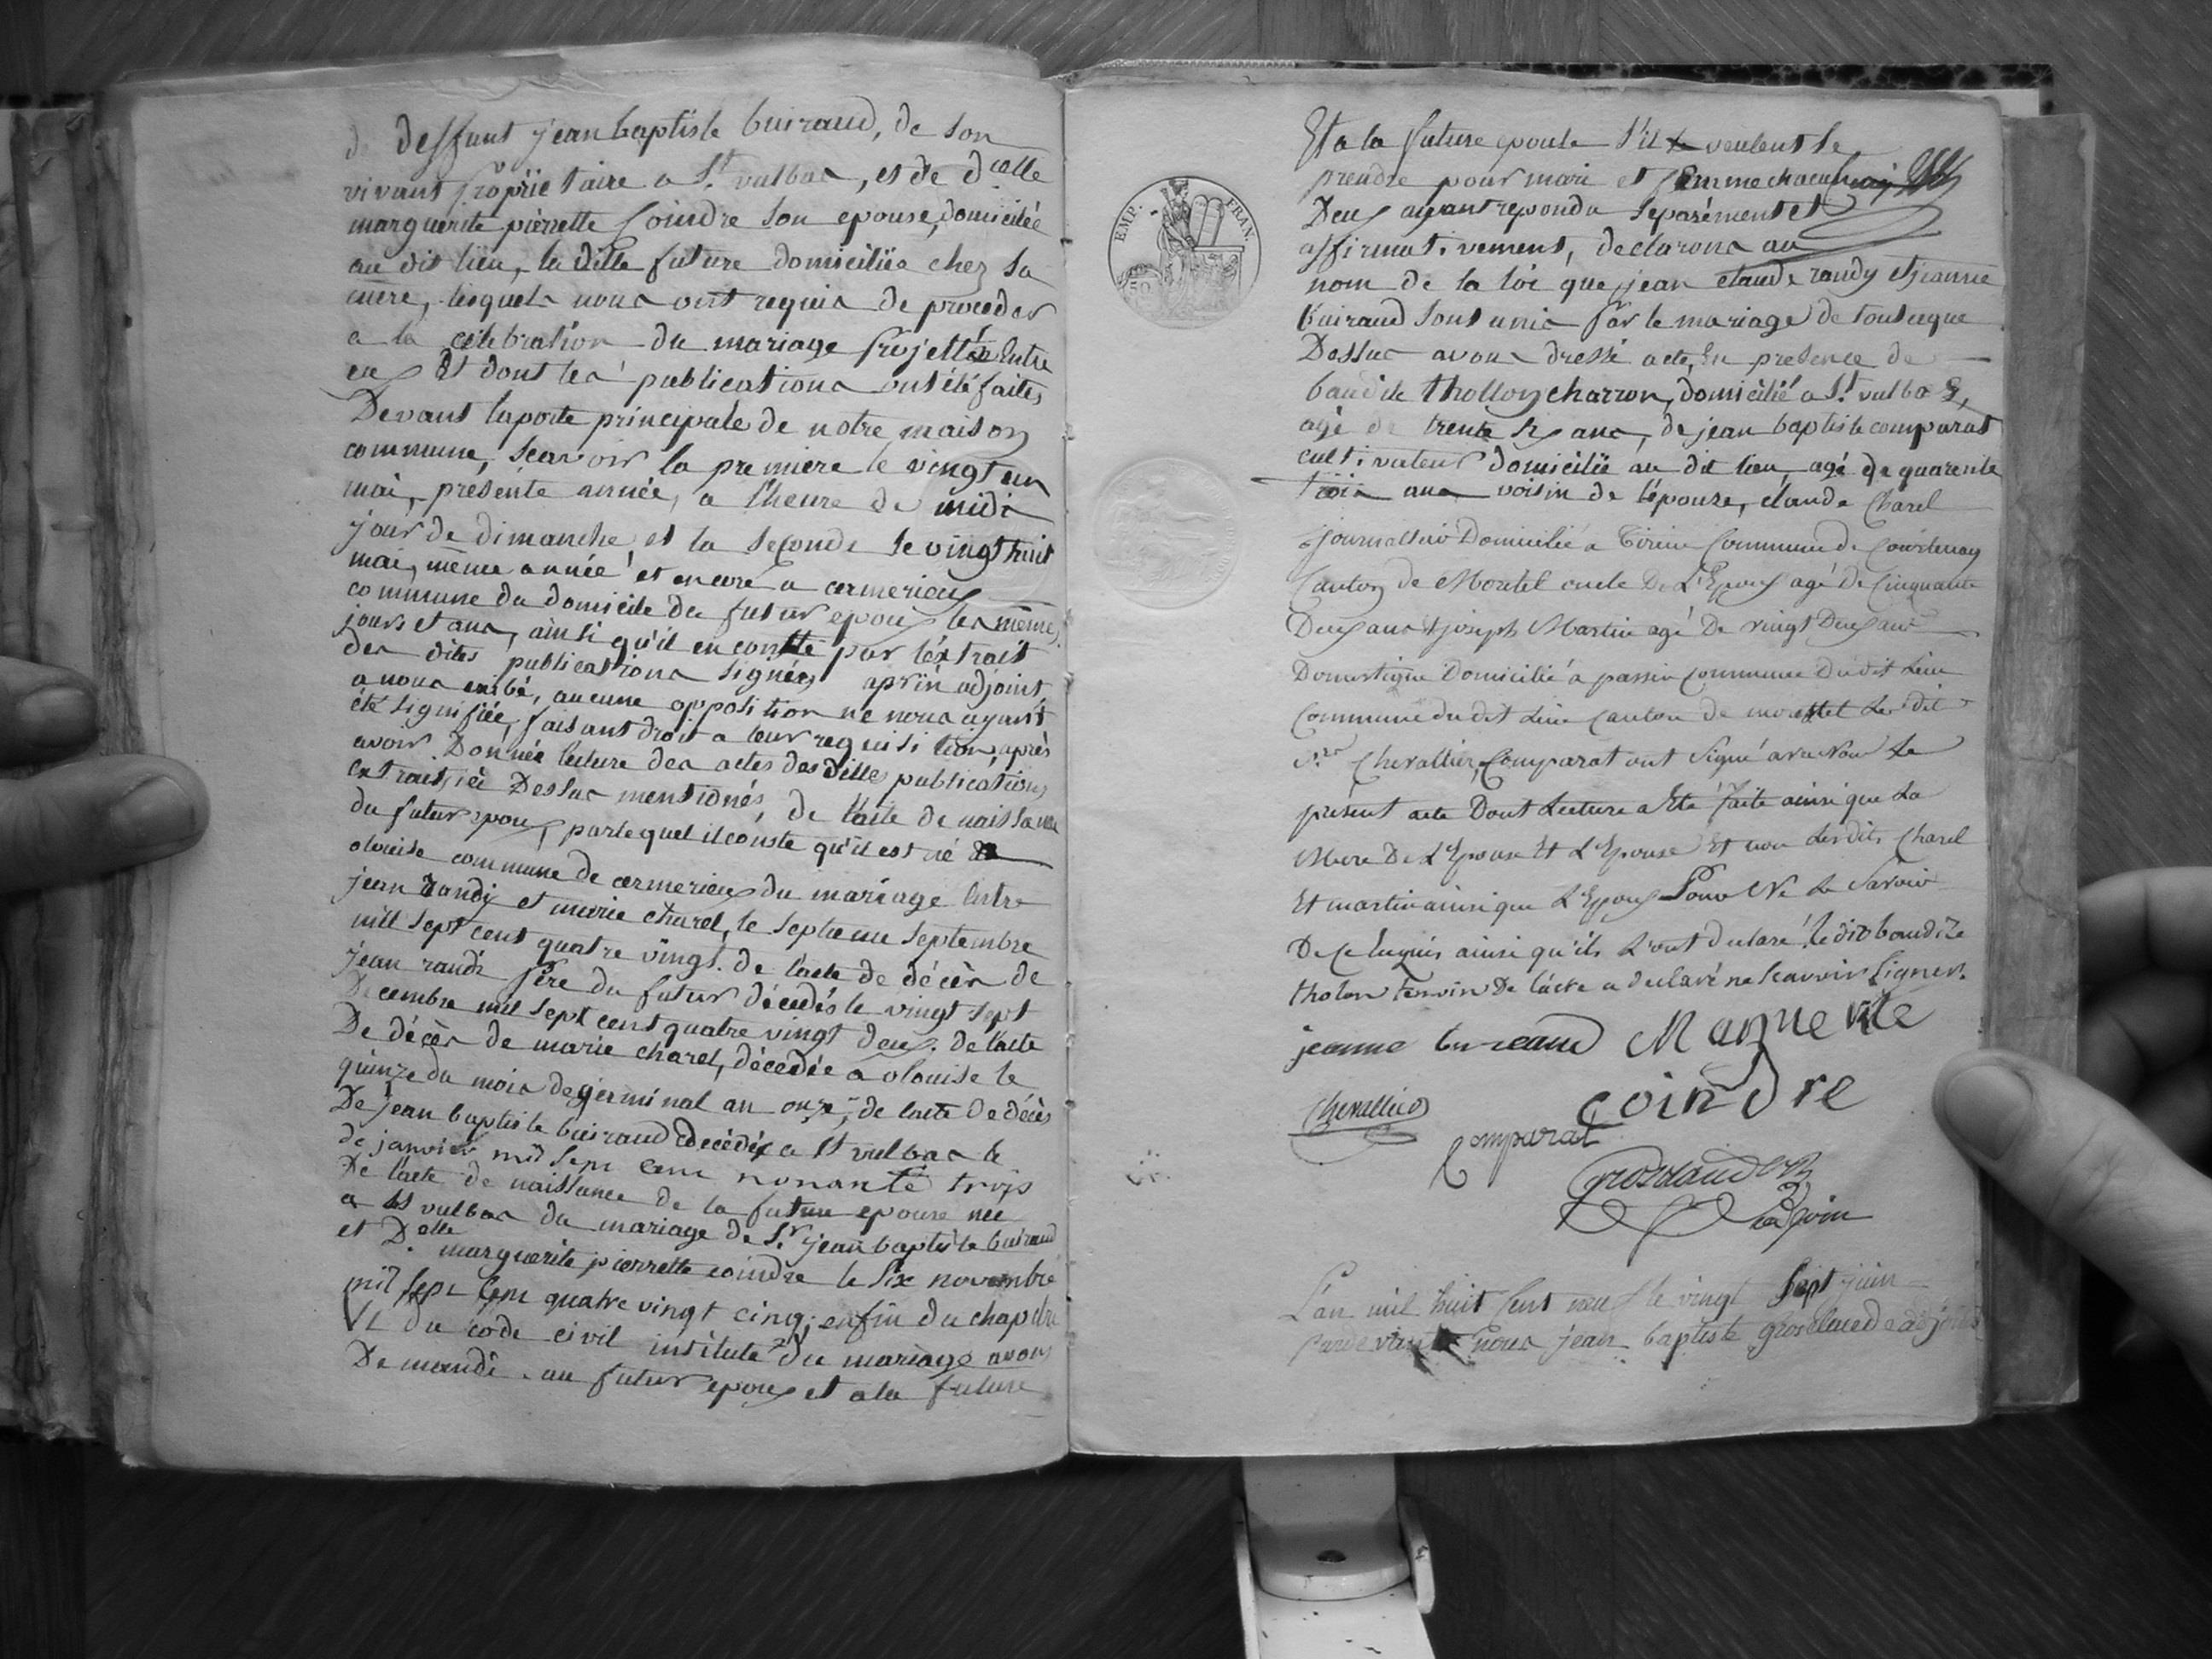 de deffunt jean baptiste buiraud, de son
vivant propriétaire a St. vulbas, et de dlle
marguerite pierrette Coindre son epouse, domiciliée
au dit lieu, la ditte future domiciliée chez sa
mere, lesquels nous ont requis de proceder
a la célébration du mariage projetté entre
eux Et dont les publications ont été faites
Devant la porte principale de notre maison
commune, scavoir la premiere le vingt un
mai, présente année, a l'heure de midi
jour de dimanche, et la seconde le vingt huit
mai, même année et encore a cermerieux
commune du domicile du futur epoux les mêmes
jours et ans, ainsi qu'il en conste par l'extrait
des dites publications signées aprin adjoint,
a nous exibé, aucune opposition ne nous ayant
été signifiée, faisant droit a leur requisition, après
avoir Donnée lecture des actes des dittes publications
extrait, ici Dessus mentionés, de l'acte de naissance
du futur epoux, par lequel il conste qu'il est né a
olouise commune de cermerieux du mariage entre
jean randy et marie charel, le septieme septembre
mil sept cent quatre vingt. de l'acte de décès de
jean randi Père du futur décédés le vingt sept
Decembre mil sept cent quatre vingt deux. de l'acte
De décès de marie charel, décedée a olouise le
quinze du mois de germinal an onze, de l'acte de décès
De jean baptiste buiraud decédé a St vulbas le
de janvier mil sept cent nonante trois
De l'acte de naissance de la future epouse née
a St vulbas du mariage de Sr. jean baptiste buiraud
et Delle. marguerite pierrette coindre le six novembre
mil sept Cent quatre vingt cinq; enfin du chapitre
VI du code civil institulé du mariage avons
Demandé au futur epoux et a la future
EMP. FRAN.
Et a la future epouse s'il se veulent se
prendre pour mari et femme chacun
Deux ayant repondu separément et
affirmativement, declarons au
nom de la loi que jean claude randy et jeanne
buiraud sont unis par le mariage de tout ce que
Dessus avons dressé acte, En presence de
baudile thollon charron, domicilié a St. vulbas,
agé de trente six ans, de jean baptiste comparat
cultivateur domicilié au dit lieu, agé de quarente
trois ans voisin de l'épouse, claude Charel
journallier Domicilié a Tirieu Commune de Courtenay
Canton de Morestel oncle De L'Epoux agé De Cinquante
Deux ans et joseph Martin agé De vingt Deux ans
Domestique Domicilié á passin commune du dit Lieu
Commune du dit Lieu canton de morestel Les Dit
Srs Chevallier, Comparat ont Signé avec Nous Le
présent acte Dont Lecture a Eté faite ainsi que La
Mere De L'Epouse Et L'Epouse Et non Les dits Charel
Et martin ainsi que L'Epoux Pour Ne Le Savoir
De Ce Enquis ainsi qu'ils L'ont declaré, Le dit baudile
tholon temoin De l'acte a declaré ne Scavoir Signer.
jeanne bureaud Marguerite
coindre
Chevallier
Comparat
Grosclaude
adjoint
L'an mil huit cent neuf le vingt sept juin
Pardevant nous jean baptiste grosclaude adjoint